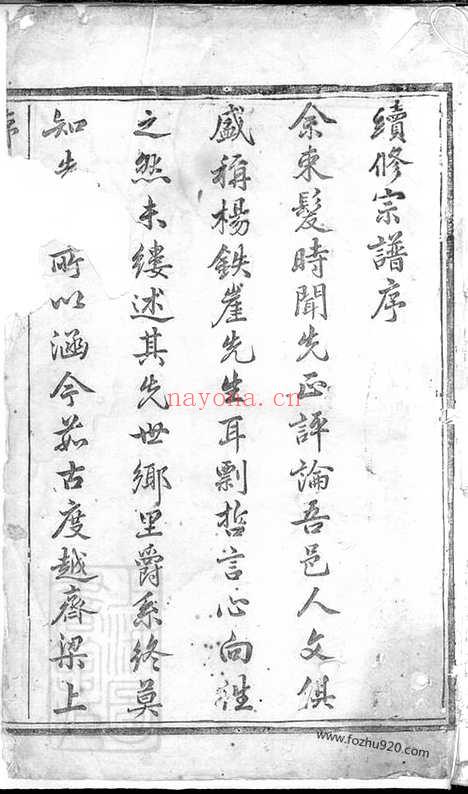 續修宗譜序
余束髮時聞先正評論吾邑人文俱
盛稱楊鉄崖先生耳剽哲言心向往
之然未縷述其先世鄉里爵系終莫
知先 所以涵今茹古度越齊梁上
nayona.cn
www.fozhu920.com